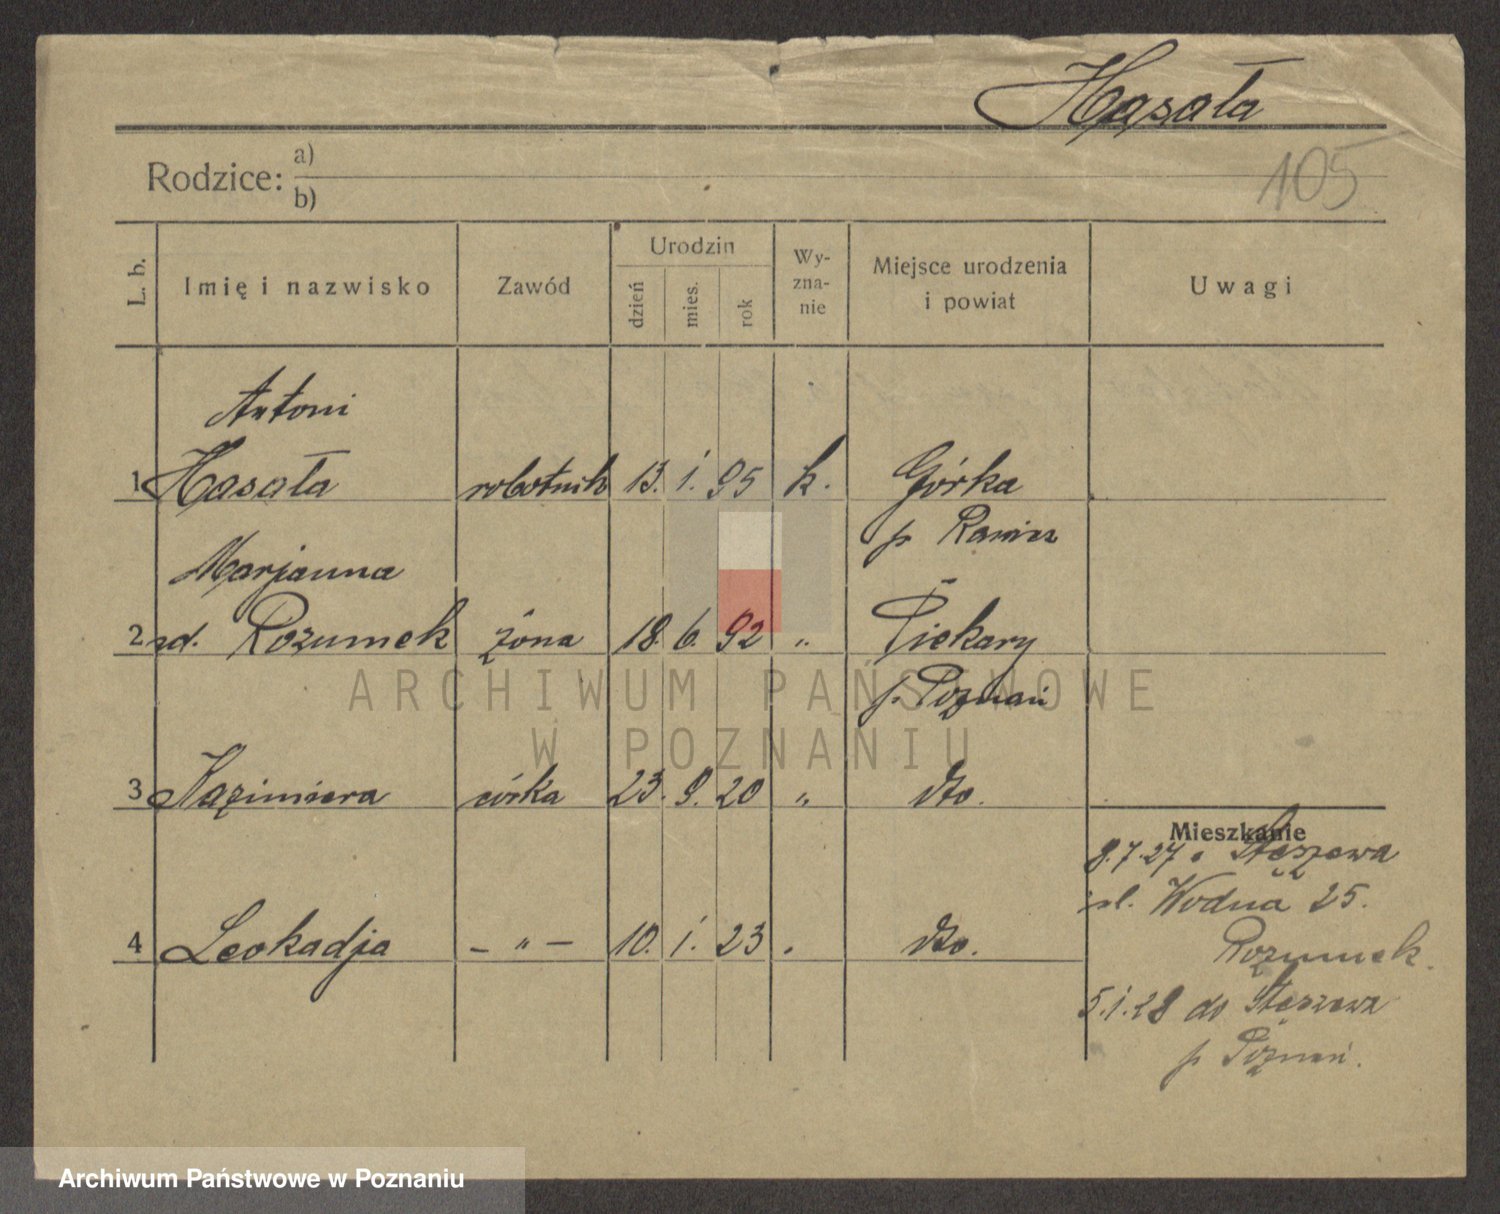 Hąsała
105
Rodzice: a)
b)
L. b. Imię i nazwisko Zawód Urodzin dzień mies. rok Wy-zna-nie Miejsce urodzenia i powiat Uwagi
Antoni
1 Hąsała robotnik 13. 1. 95 k. Górka
p Rawicz
Marjanna
2 zd. Rozumek żona 18. 6. 92 " Piekary
p. Poznań
ARCHIWUM PAŃSTWOWE
W POZNANIU
3 Kazimiera córka 23. 9. 20 " dto.
Mieszkanie
8.7.27 Stęszewa
4 Leokadja – " – 10. 1. 23 dto.
ul. Wodna 25.
Rozumek.
5.1.28 do Stęszewa
p Poznań.
Archiwum Państwowe w Poznaniu